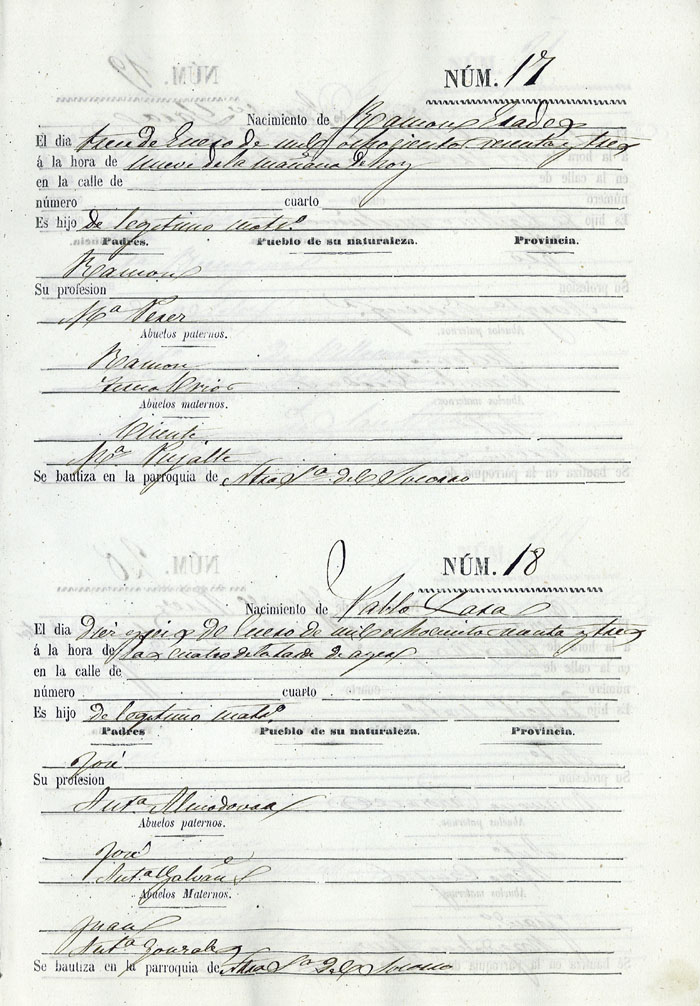 NÚM. 17
Nacimiento de Ramon
El dia trece de Enero de mil ochocientos y tres
á la hora de nueve de la mañana de hoy
en la calle de
número cuarto
Es hijo de legitimo matr.º
Padres. Pueblo de su naturaleza. Provincia.
Ramon
Su profesion
Mª Perer
Abuelos paternos.
Ramon
Abuelos maternos.
Vicente
Mª Pujalte
Se bautiza en la parroquia de Ntra Srª del Socorro
NÚM. 18
Nacimiento de Pablo Lara
El dia de Enero de mil ochocientos y tres
á la hora de las cuatro de la tarde de ayer
en la calle de
número cuarto
Es hijo de legitimo matr.º
Padres Pueblo de su naturaleza. Provincia.
José
Su profesion
Antª Almodovar
Abuelos paternos.
José
Antª Galvañ
Abuelos Maternos.
Juan
Antª Gonzalez
Se bautiza en la parroquia de Ntra Srª del Socorro